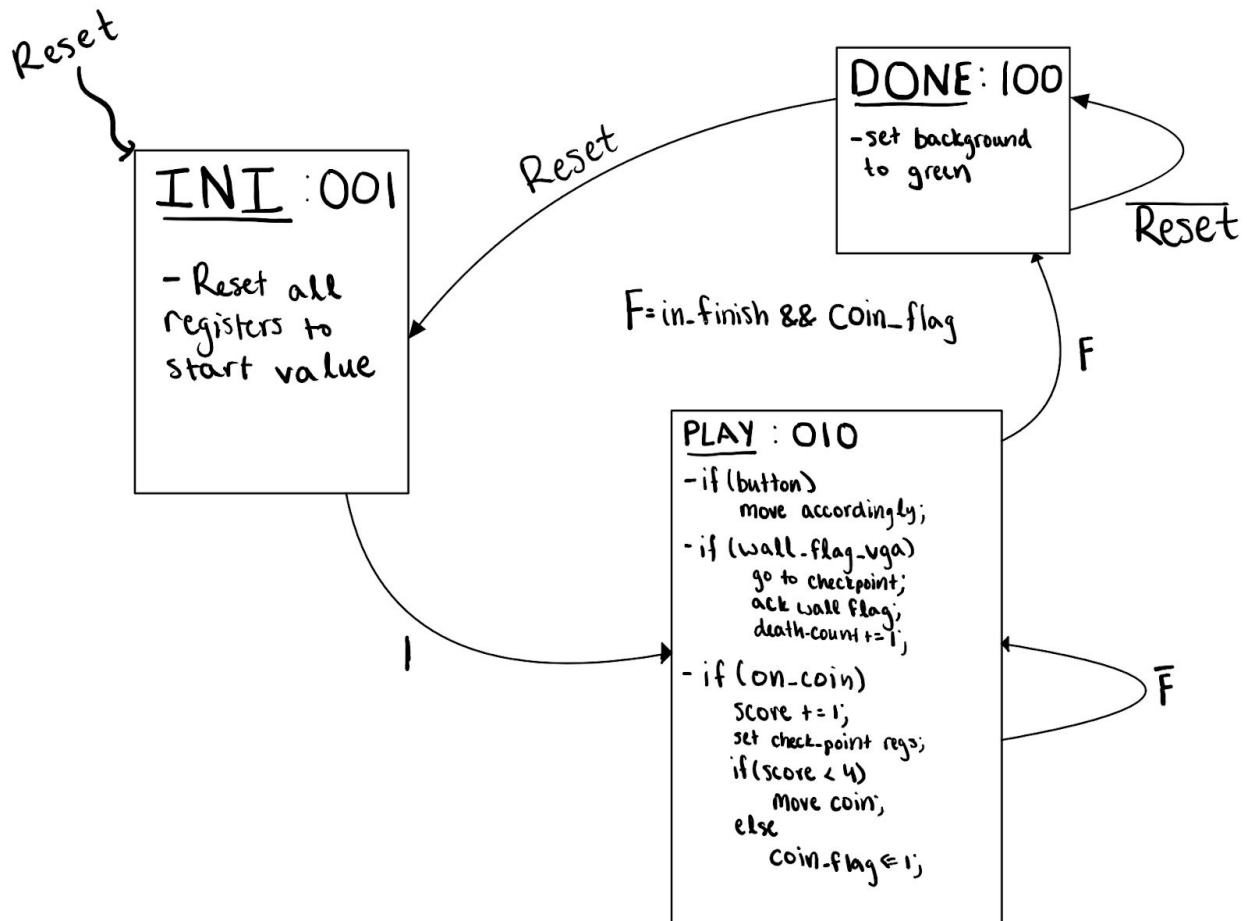 Reset
INI : 001
- Reset all
registers to
start value
Reset
DONE : 100
- set background
to green
R̅e̅s̅e̅t̅
F = in_finish && coin_flag
F
1
PLAY : 010
- if (button)
move accordingly;
- if (wall_flag_vga)
go to checkpoint;
ack wall flag;
death_count += 1;
- if (on_coin)
score += 1;
set check_point regs;
if (score < 4)
move coin;
else
coin_flag <= 1;
F̅